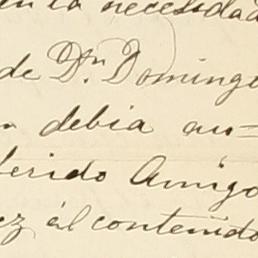 en la necesidad
de Dn. Domingo
debia au=
ferido Amigo
ez él contenido